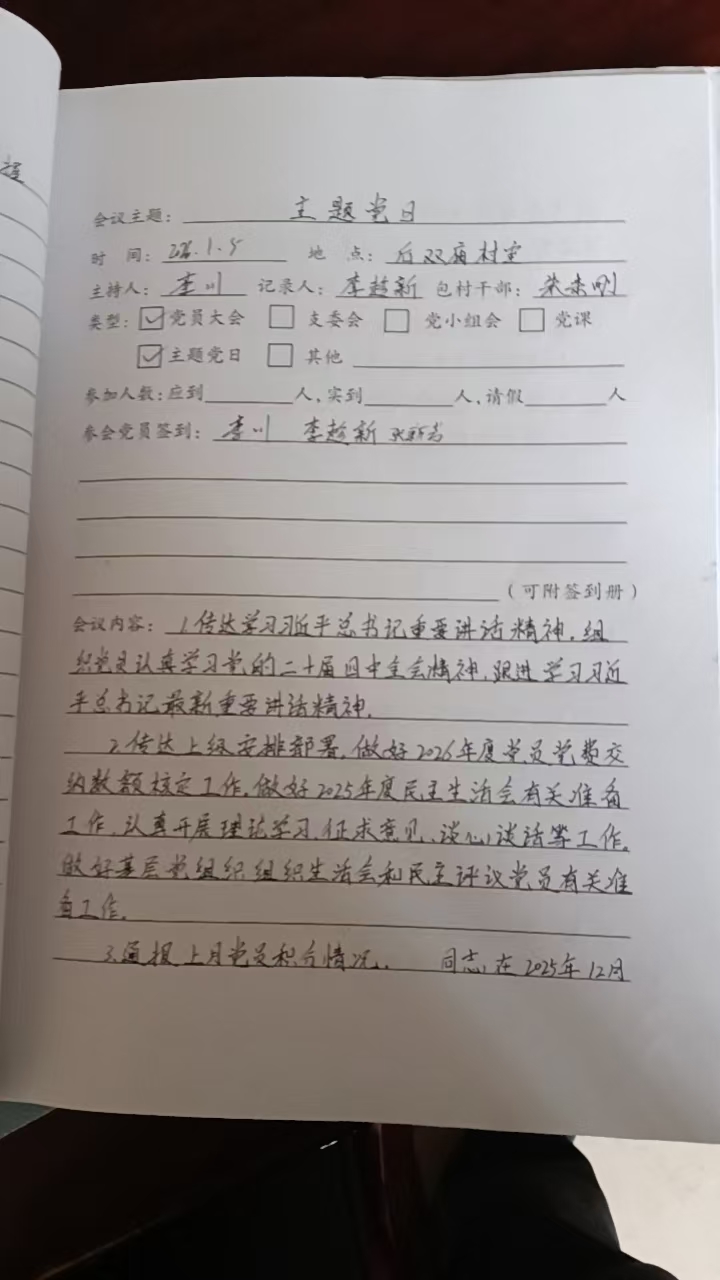 程
会议主题: 主题党日
时 间: 2026.1.5 地 点: 后双庙村室
主持人: 李川 记录人: 李趁新 包村干部: 刚
类型: ☑党员大会 □ 支委会 □ 党小组会 □ 党课
☑主题党日 □ 其他
参加人数:应到 人,实到 人,请假 人
参会党员签到: 李川 李趁新
(可附签到册)
会议内容: 1.传达学习习近平总书记重要讲话精神,组
织党员认真学习党的二十届四中全会精神,跟进学习习近
平总书记最新重要讲话精神.
2.传达上级安排部署,做好2026年度党员党费交
纳数额核定工作,做好2025年度民主生活会有关准备
工作,认真开展理论学习、征求意见、谈心谈话等工作,
做好基层党组织组织生活会和民主评议党员有关准
备工作.
3.通报上月党员积分情况. 同志,在2025年12月